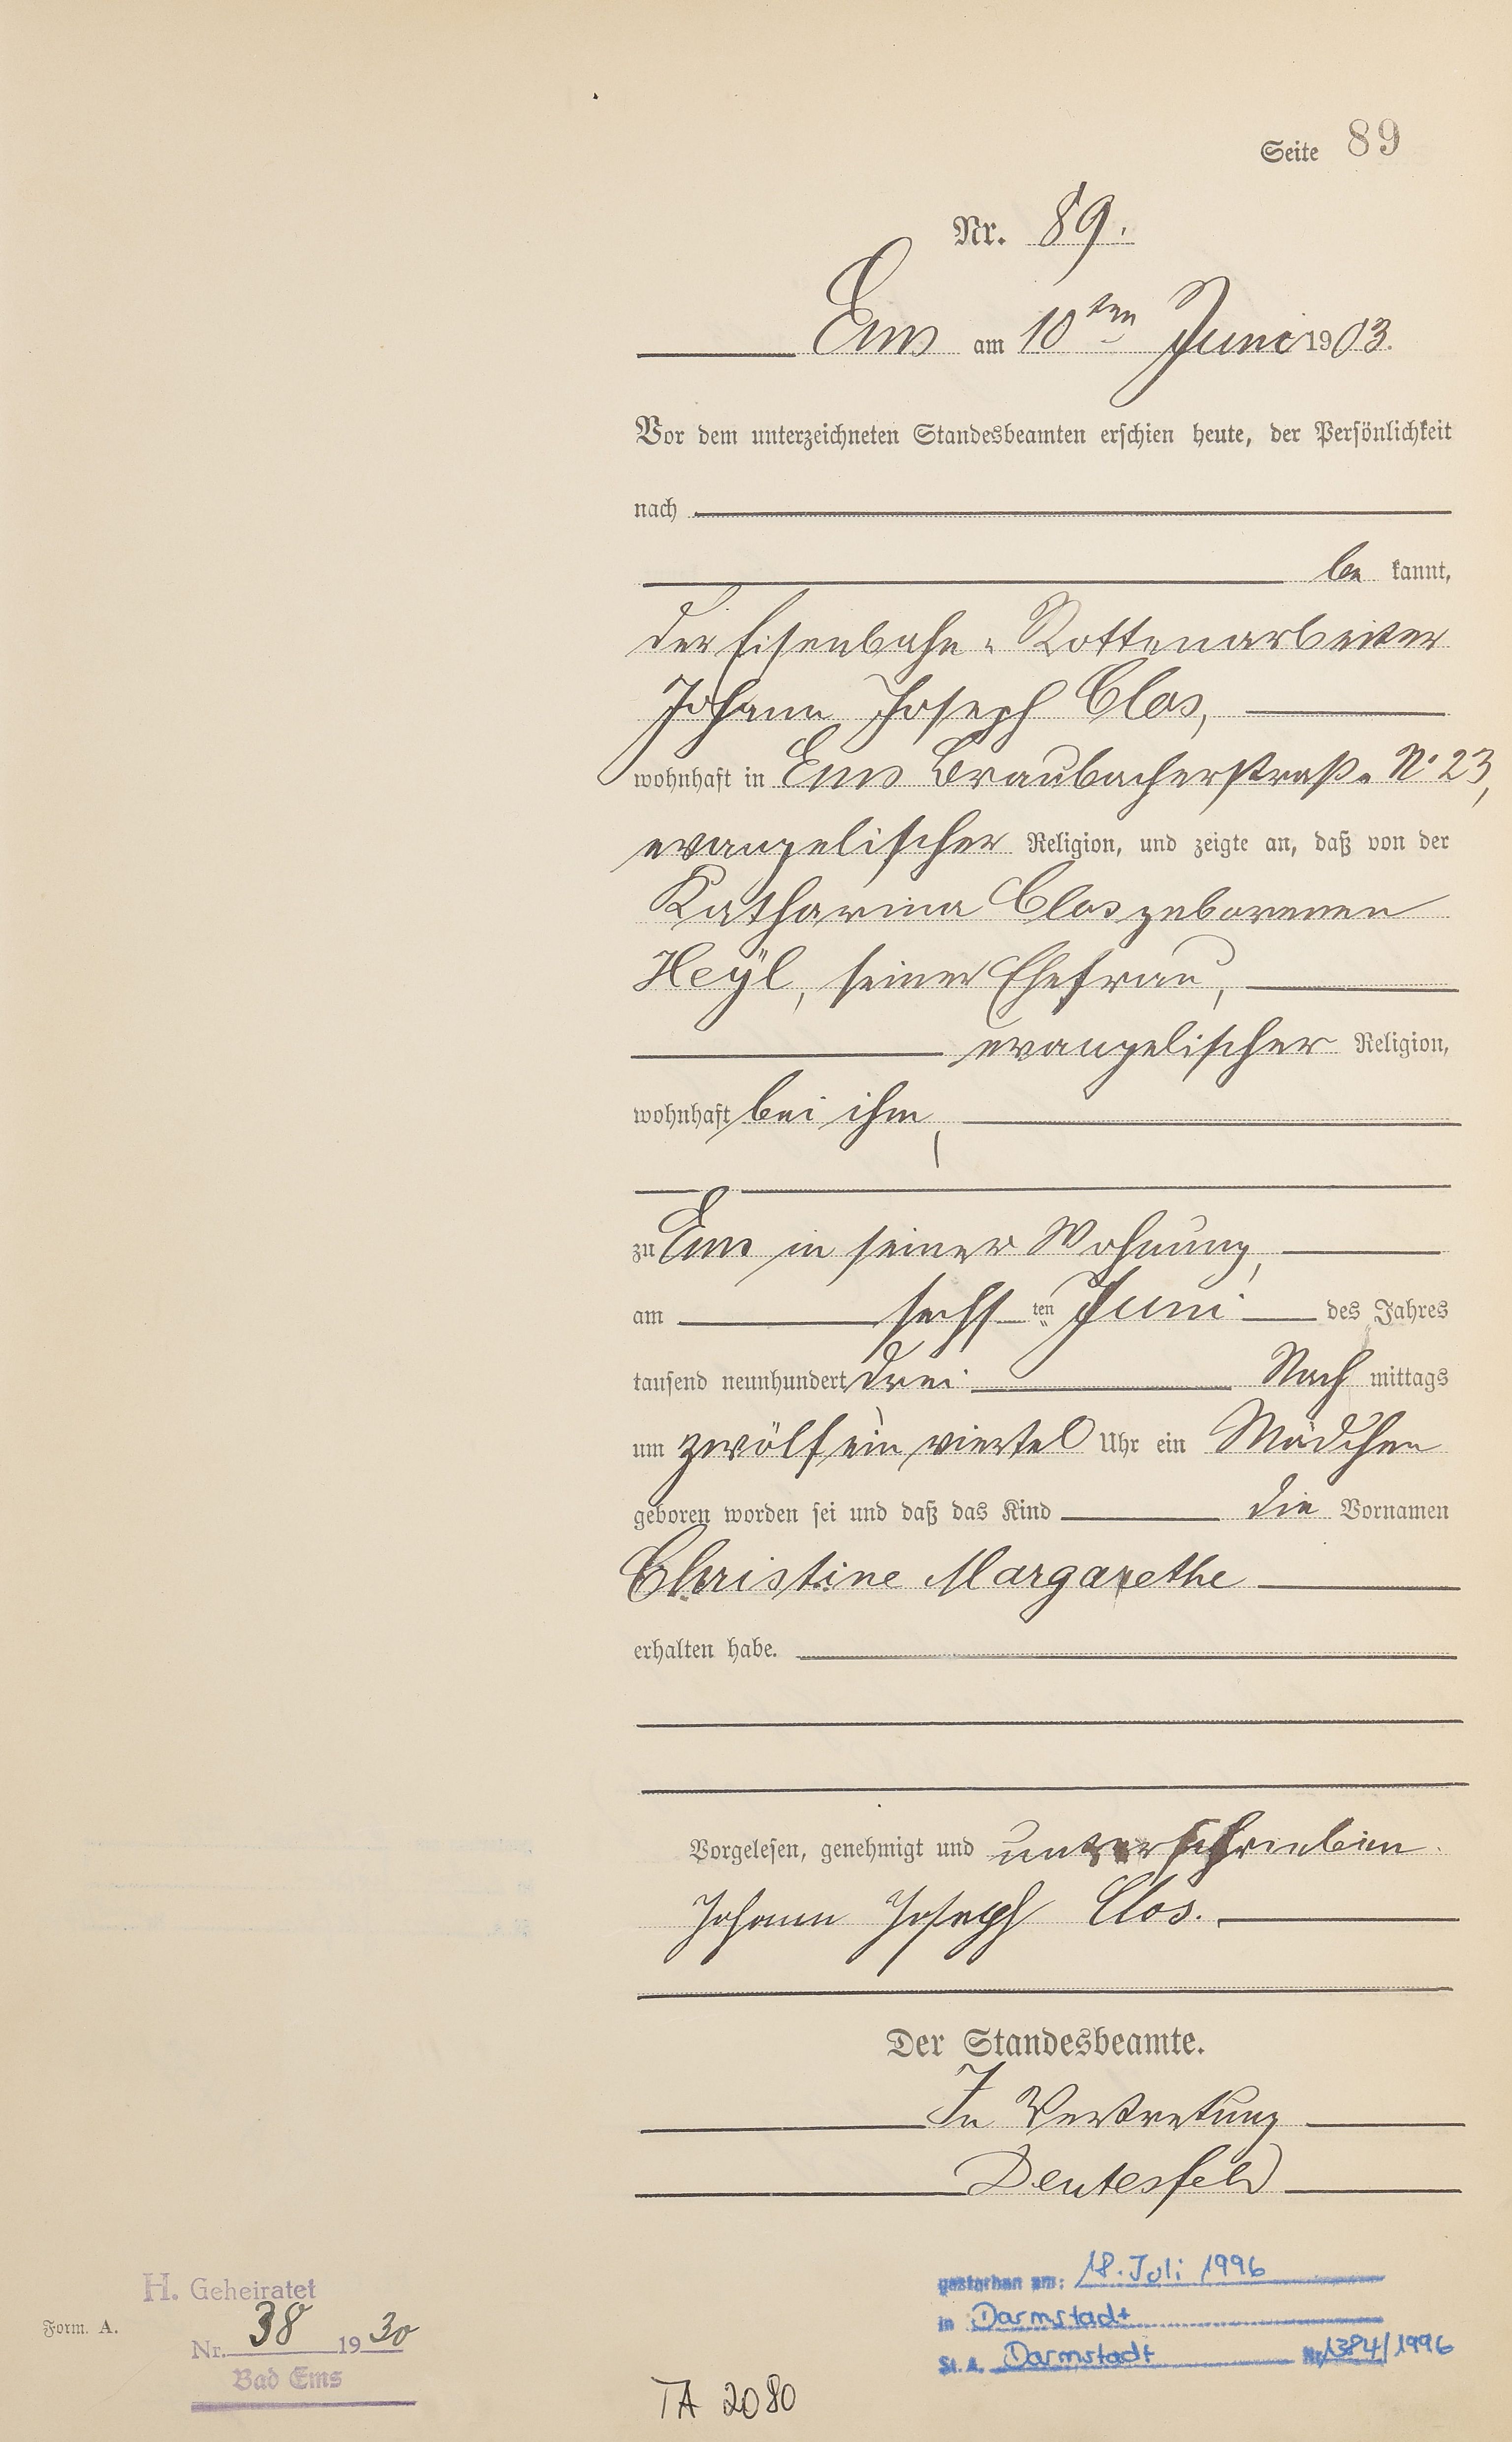 Seite 89
Nr. 89.
Ems am 10ten Juni 1903.
Vor dem unterzeichneten Standesbeamten erschien heute, der Persönlichkeit
nach
be kannt,
der Eisenbahn-Rottenarbeiter
Johann Joseph Clos,
wohnhaft in Ems Braubacherstraße No 23,
evangelischer Religion, und zeigte an, daß von der
Katharina Clos geborenen
Heyl, seiner Ehefrau,
evangelischer Religion,
wohnhaft bei ihm,
zu Ems in seiner Wohnung,
am sechsten Juni des Jahres
tausend neunhundert drei Nach mittags
um zwölf ein viertel Uhr ein Mädchen
geboren worden sei und daß das Kind die Vornamen
Christine Margarethe
erhalten habe.
Vorgelesen, genehmigt und unterschrieben.
Johann Joseph Clos.
Der Standesbeamte.
In Vertretung
Deutesfeld
gestorben am: 18. Juli 1996
in Darmstadt
St. A. Darmstadt Nr. 1384/1996
H. Geheiratet
Form. A.
Nr. 38 1930
Bad Ems
TA 2080